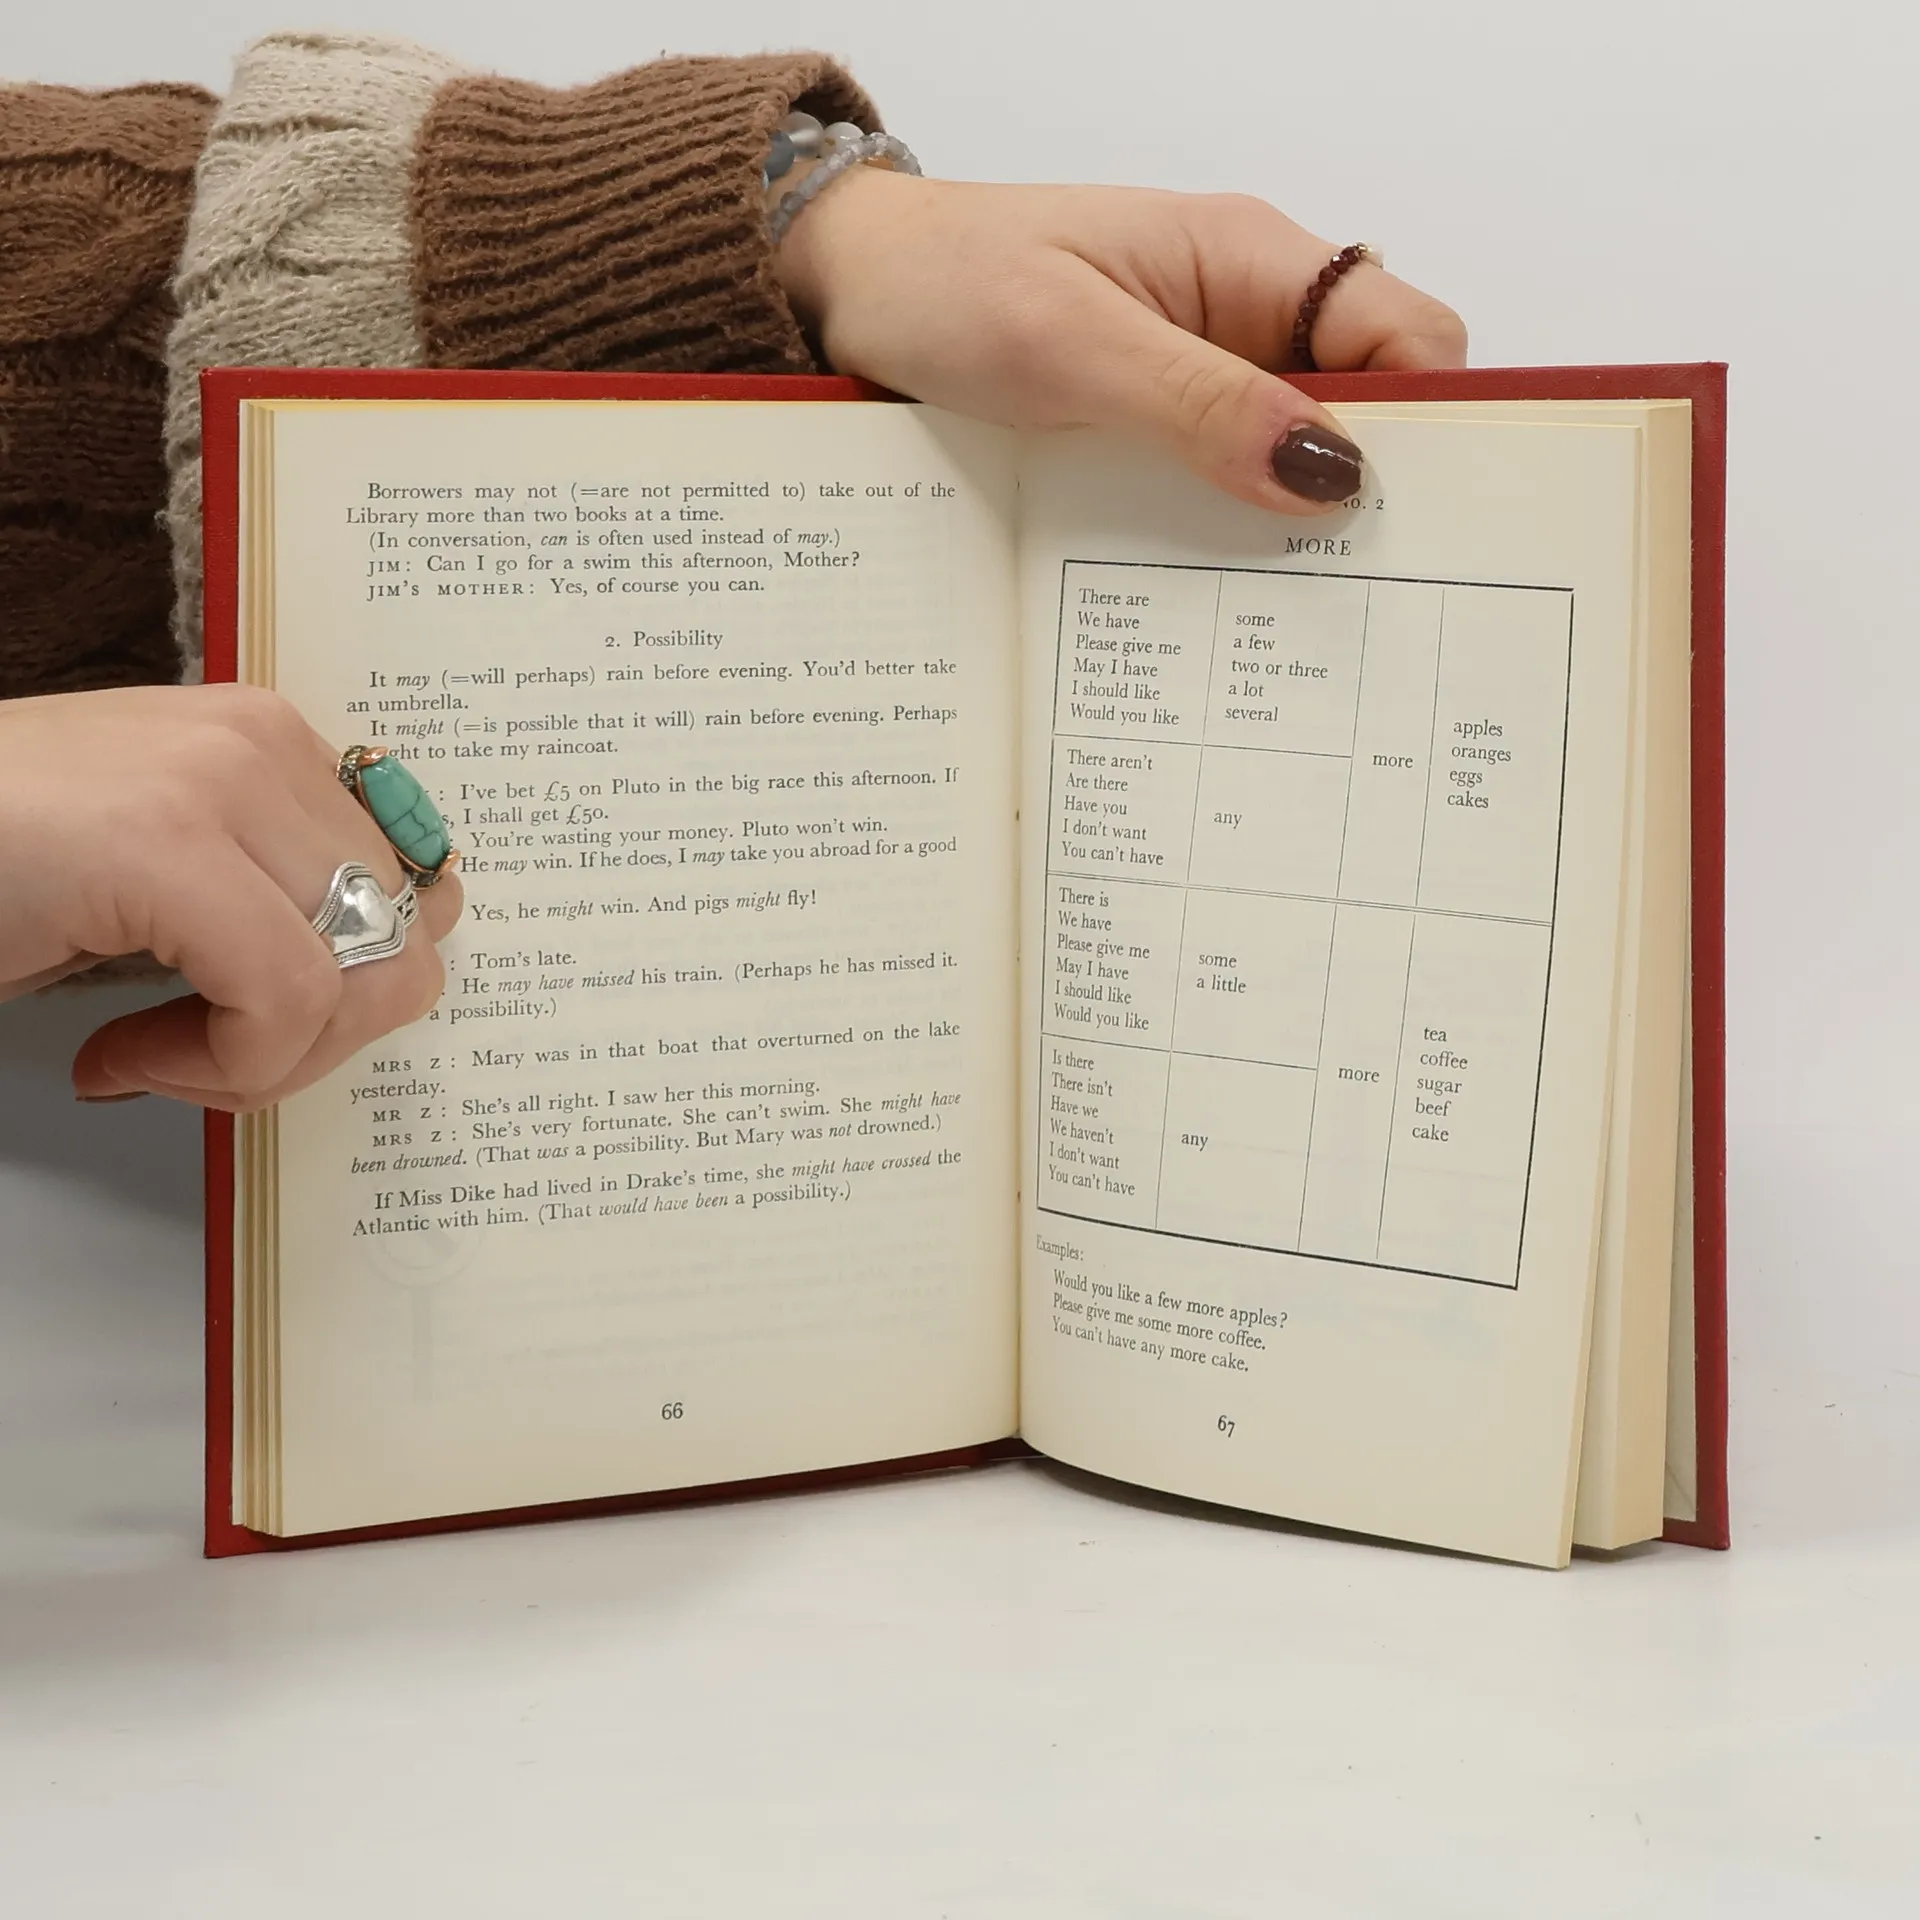 Borrowers may not (=are not permitted to) take out of the
Library more than two books at a time.
(In conversation, can is often used instead of may.)
JIM: Can I go for a swim this afternoon, Mother?
JIM'S MOTHER: Yes, of course you can.
2. Possibility
It may (=will perhaps) rain before evening. You'd better take
an umbrella.
It might (=is possible that it will) rain before evening. Perhaps
to take my raincoat.
: I've bet £5 on Pluto in the big race this afternoon. If
I shall get £50.
You're wasting your money. Pluto won't win.
He may win. If he does, I may take you abroad for a good
Yes, he might win. And pigs might fly!
: Tom's late.
He may have missed his train. (Perhaps he has missed it.
a possibility.)
MRS Z: Mary was in that boat that overturned on the lake
yesterday.
MR Z: She's all right. I saw her this morning.
MRS Z: She's very fortunate. She can't swim. She might have
been drowned. (That was a possibility. But Mary was not drowned.)
If Miss Dike had lived in Drake's time, she might have crossed the
Atlantic with him. (That would have been a possibility.)
66
2
MORE
There are
We have
Please give me
May I have
I should like
Would you like
some
a few
two or three
a lot
several
There aren't
Are there
Have you
I don't want
You can't have
any
more
apples
oranges
eggs
cakes
There is
We have
Please give me
May I have
I should like
Would you like
some
a little
Is there
There isn't
Have we
We haven't
I don't want
You can't have
any
more
tea
coffee
sugar
beef
cake
Examples:
Would you like a few more apples?
Please give me some more coffee.
You can't have any more cake.
67